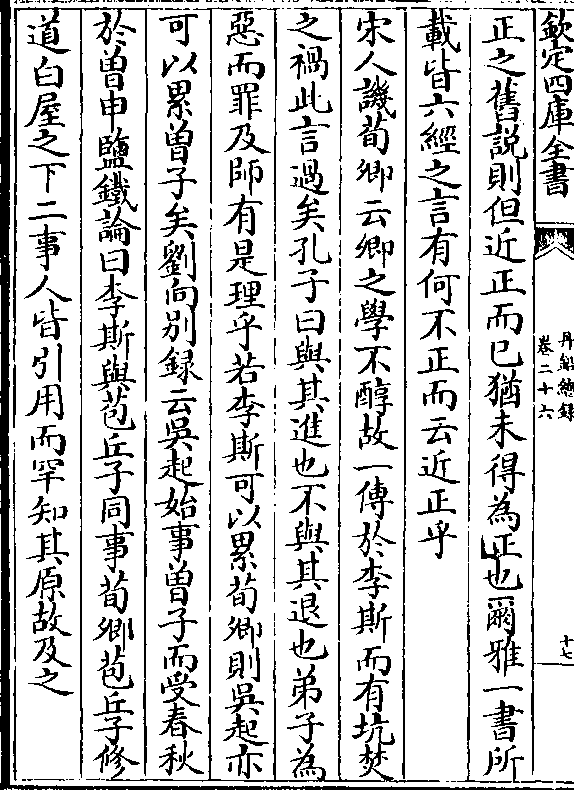 欽定四庫全書
丹鉛總錄
卷二十六
十七
正之舊説則但近正而已猶未得為正也爾雅一書所
載皆六經之言有何不正而云近正乎
宋人譏荀卿云卿之學不醇故一傳於李斯而有坑焚
之禍此言過矣孔子曰與其進也不與其退也弟子為
惡而罪及師有是理乎若李斯可以累荀卿則吳起亦
可以累曾子矣劉向别録云吳起始事曾子而受春秋
於曽申鹽鐵論曰李斯與苞丘子同事荀卿苞丘子修
道白屋之下二事人皆引用而罕知其原故及之